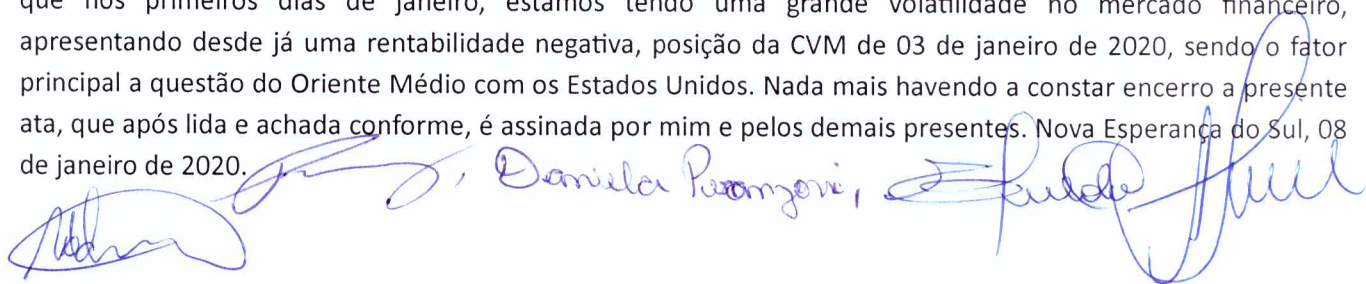 que nos primeiros dias de janeiro, estamos tendo uma grande volatilidade no mercado financeiro,
apresentando desde já uma rentabilidade negativa, posição da CVM de 03 de janeiro de 2020, sendo o fator
principal a questão do Oriente Médio com os Estados Unidos. Nada mais havendo a constar encerro a presente
ata, que após lida e achada conforme, é assinada por mim e pelos demais presentes. Nova Esperança do Sul, 08
de janeiro de 2020. , Daniela ,